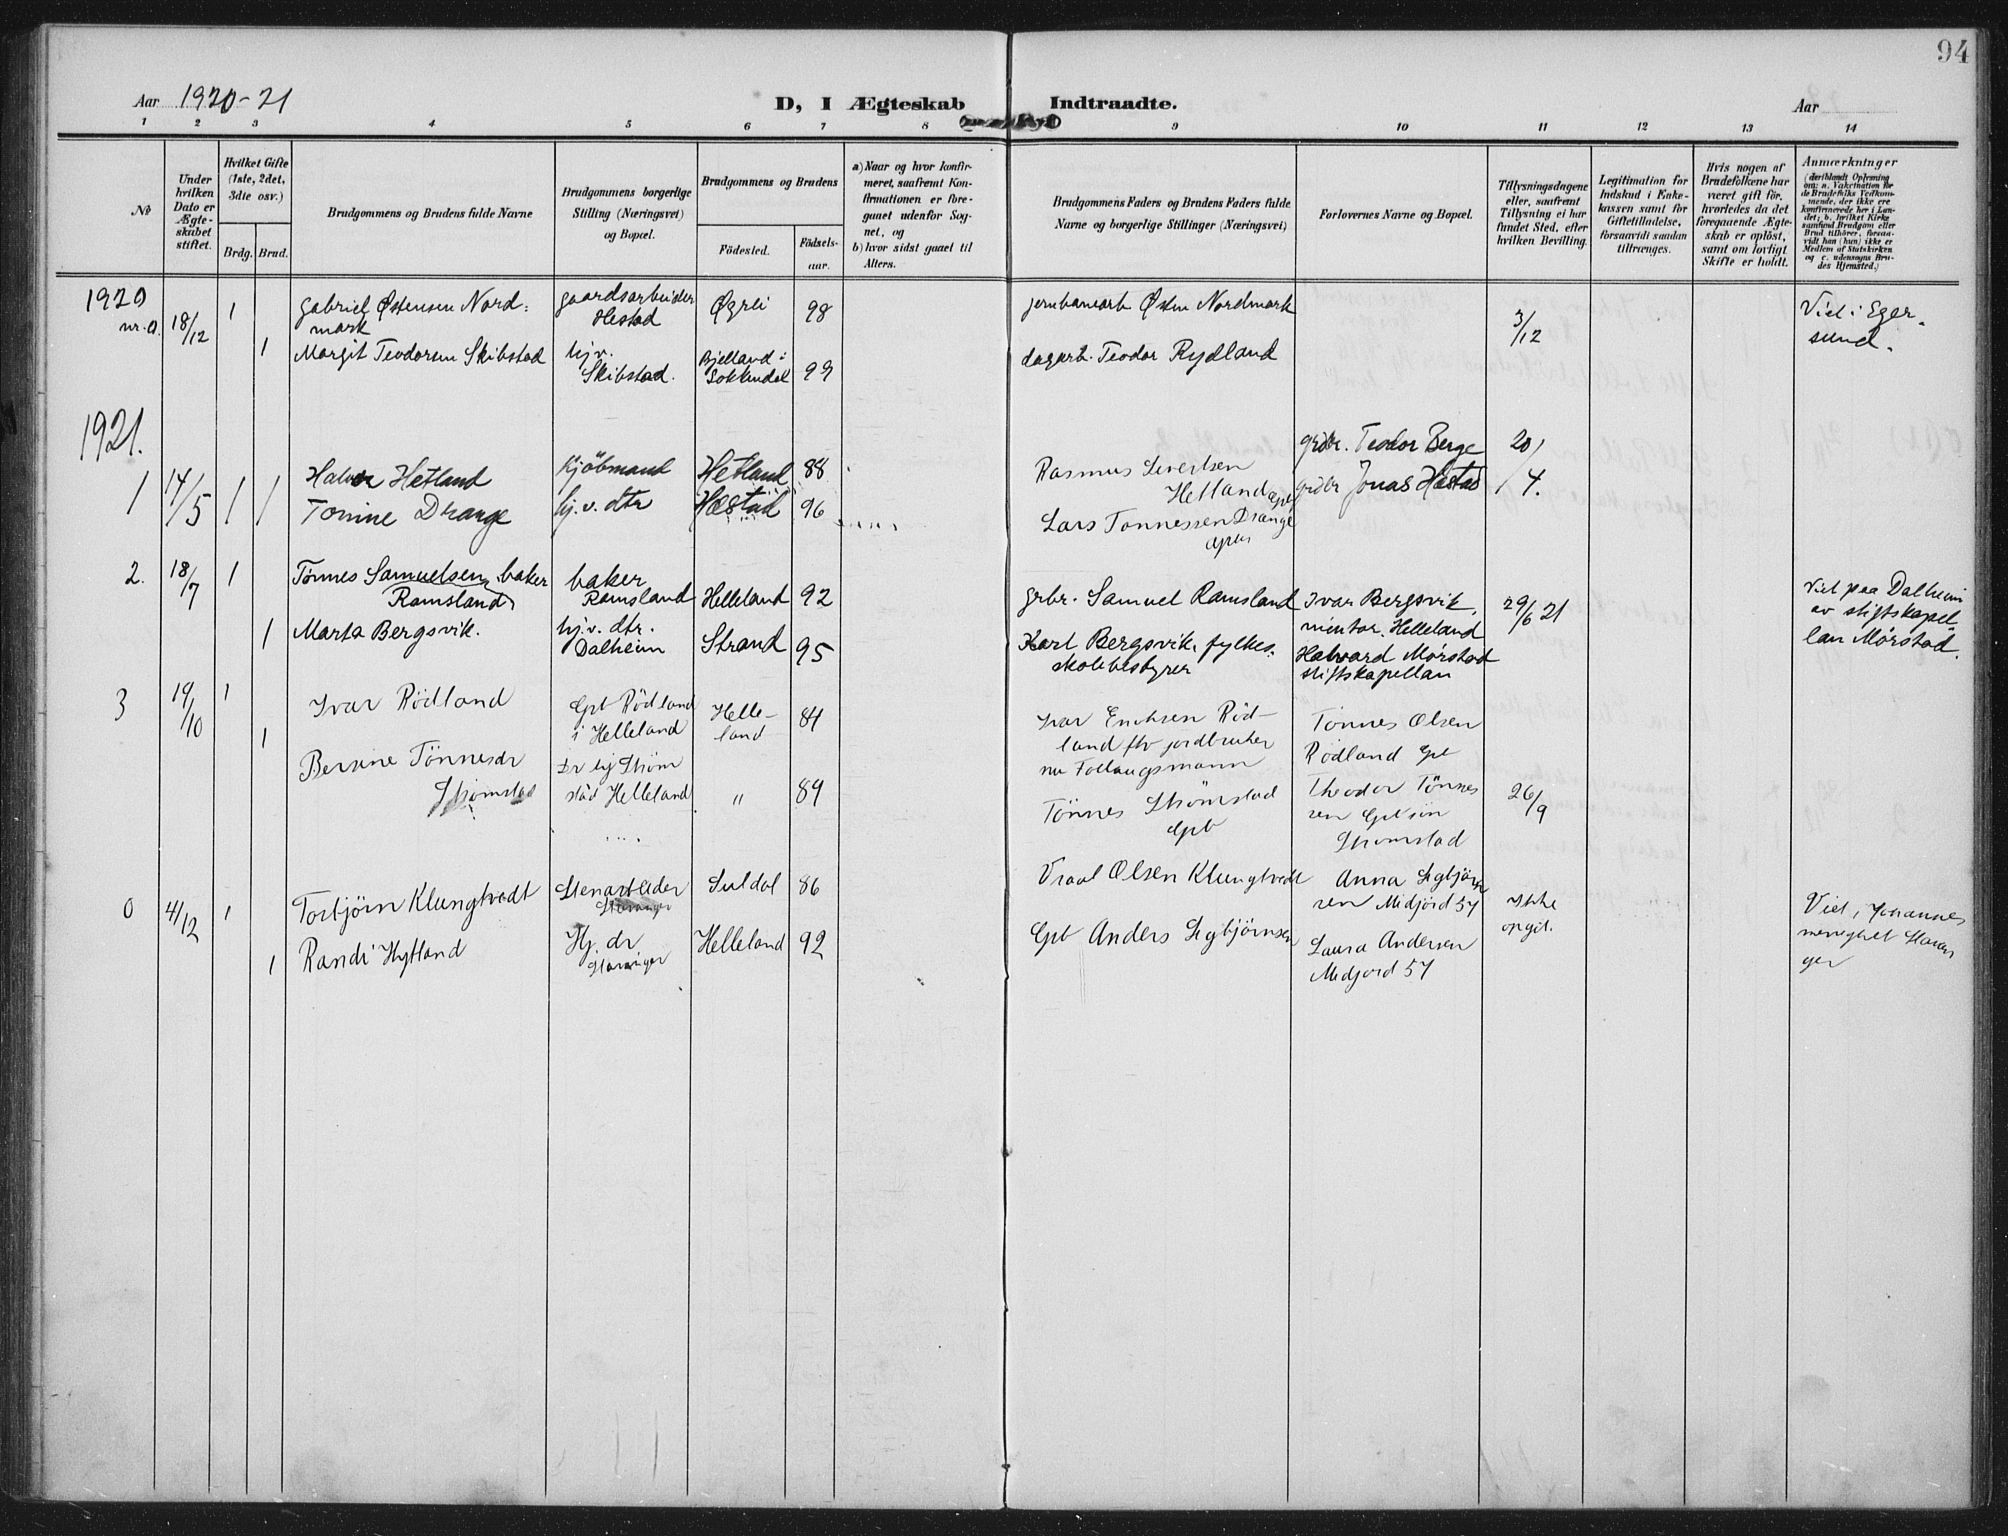 94
Aar 1920-21
D, I Ægteskab Indtraadte.
Aar
1 2 3 4 5 6 7 8 9 10 11 12 13 14
No
Under hvilken Dato er Ægteskabet stiftet.
Hvilket Gifte (1ste, 2det, 3die osv.)
Brdg. Brud.
Brudgommens og Brudens fulde Navne
Brudgommens borgerlige Stilling (Næringsvei) og Bopæl.
Brudgommens og Brudens
Fødested. Fødselsaar.
a) Naar og hvor konfirmeret, saafremt Konfirmationen er foregaaet udenfor Sognet, og
b) hvor sidst gaaet til Alters.
Brudgommens Faders og Brudens Faders fulde Navne og borgerlige Stillinger (Næringsvei)
Forlovernes Navne og Bopæl.
Tillysningsdagene eller, saafremt Tillysning ei har fundet Sted, efter hvilken Bevilling.
Legitimation for Indskud i Enkekassen samt for Giftetilladelse, forsaavidt saadan tiltrænges.
Hvis nogen af Brudefolkene har været gift før, hvorledes da det foregaaende Ægteskab er opløst, samt om lovligt Skifte er holdt.
Anmærkninger (deriblandt Oplysning om: a. Vakcination for de Brudefolks Vedkommende, der ikke ere konfirmerede her i Landet; b. hvilket Kirkesamfund Brudgom eller Brud tilhører, forsaavidt han (hun) ikke er Medlem af Statskirken og c. udensogns Brudes Hjemsted.)
1920
nr. 0. 18/12 1 Gabriel Østensen Nord=
mark
gaardsarbeider
Hestad
Øgrei 98
jernbanearb Østen Nordmark
3/12
Viet i Eger-
sund.
1 Margit Teodorsen Skibstad
hj.v.
Skibstad.
Bjelland i
Sokkndal 99
dagarb. Teodor Rydland
1921.
1 14/5 1 1 Halvor Hetland
Kjöbmand
Hetland 88
Rasmus Sivertsen
Hetland
grdbr. Teodor Berge
20/4.
Tonine Drange
hj. v. dtr
Hæstad 96
Lars Tønnessen Drange
grdbr Jonas Hæstad
2. 18/7 1 Tønnes Samuelsen, baker
Ramsland
baker
Ramsland
Helleland 92
grbr. Samuel Ramsland
Ivar Bergsvik,
Helleland
29/6 21
Viet paa Dalheim
av stiftskapel
lan Mørstad.
1 Marta Bergsvik.
hj.v. dtr.
Dalheim
Strand 95
Karl Bergsvik, fylkes.
skolebestyrer
Halvard Mørstad
stiftskapellan
3 19/10 1 Ivar Rödland
Gpb Rödland
i Helleland
Helle-
land 84
Ivar Ericksen Röd-
land fhv jordbruker
nu
Tönnes Olsen
Rödland Gpb
1 Bersine Tönnesdr
Strömstad
Dr hj Ström
stad Helleland
" 89
Tönnes Strömstad
Gpb
Theodor Tönnes
sen
Strömstad
26/9
0 4/12 1 Torbjörn Klungtvedt
Stenarbeider
Stavanger
Suldal 86
Vraal Olsen Klungtvedt
Anna Sigbjörn
sen Midjord 57
Ikke
opgit.
Viet i Johannes
menighet Stavan
ger
1 Randi Hytland
Hj. dr
Stavanger
Helleland 92
Gpb Anders Sigbjörnsen
Laura Andersen
Midjord 57